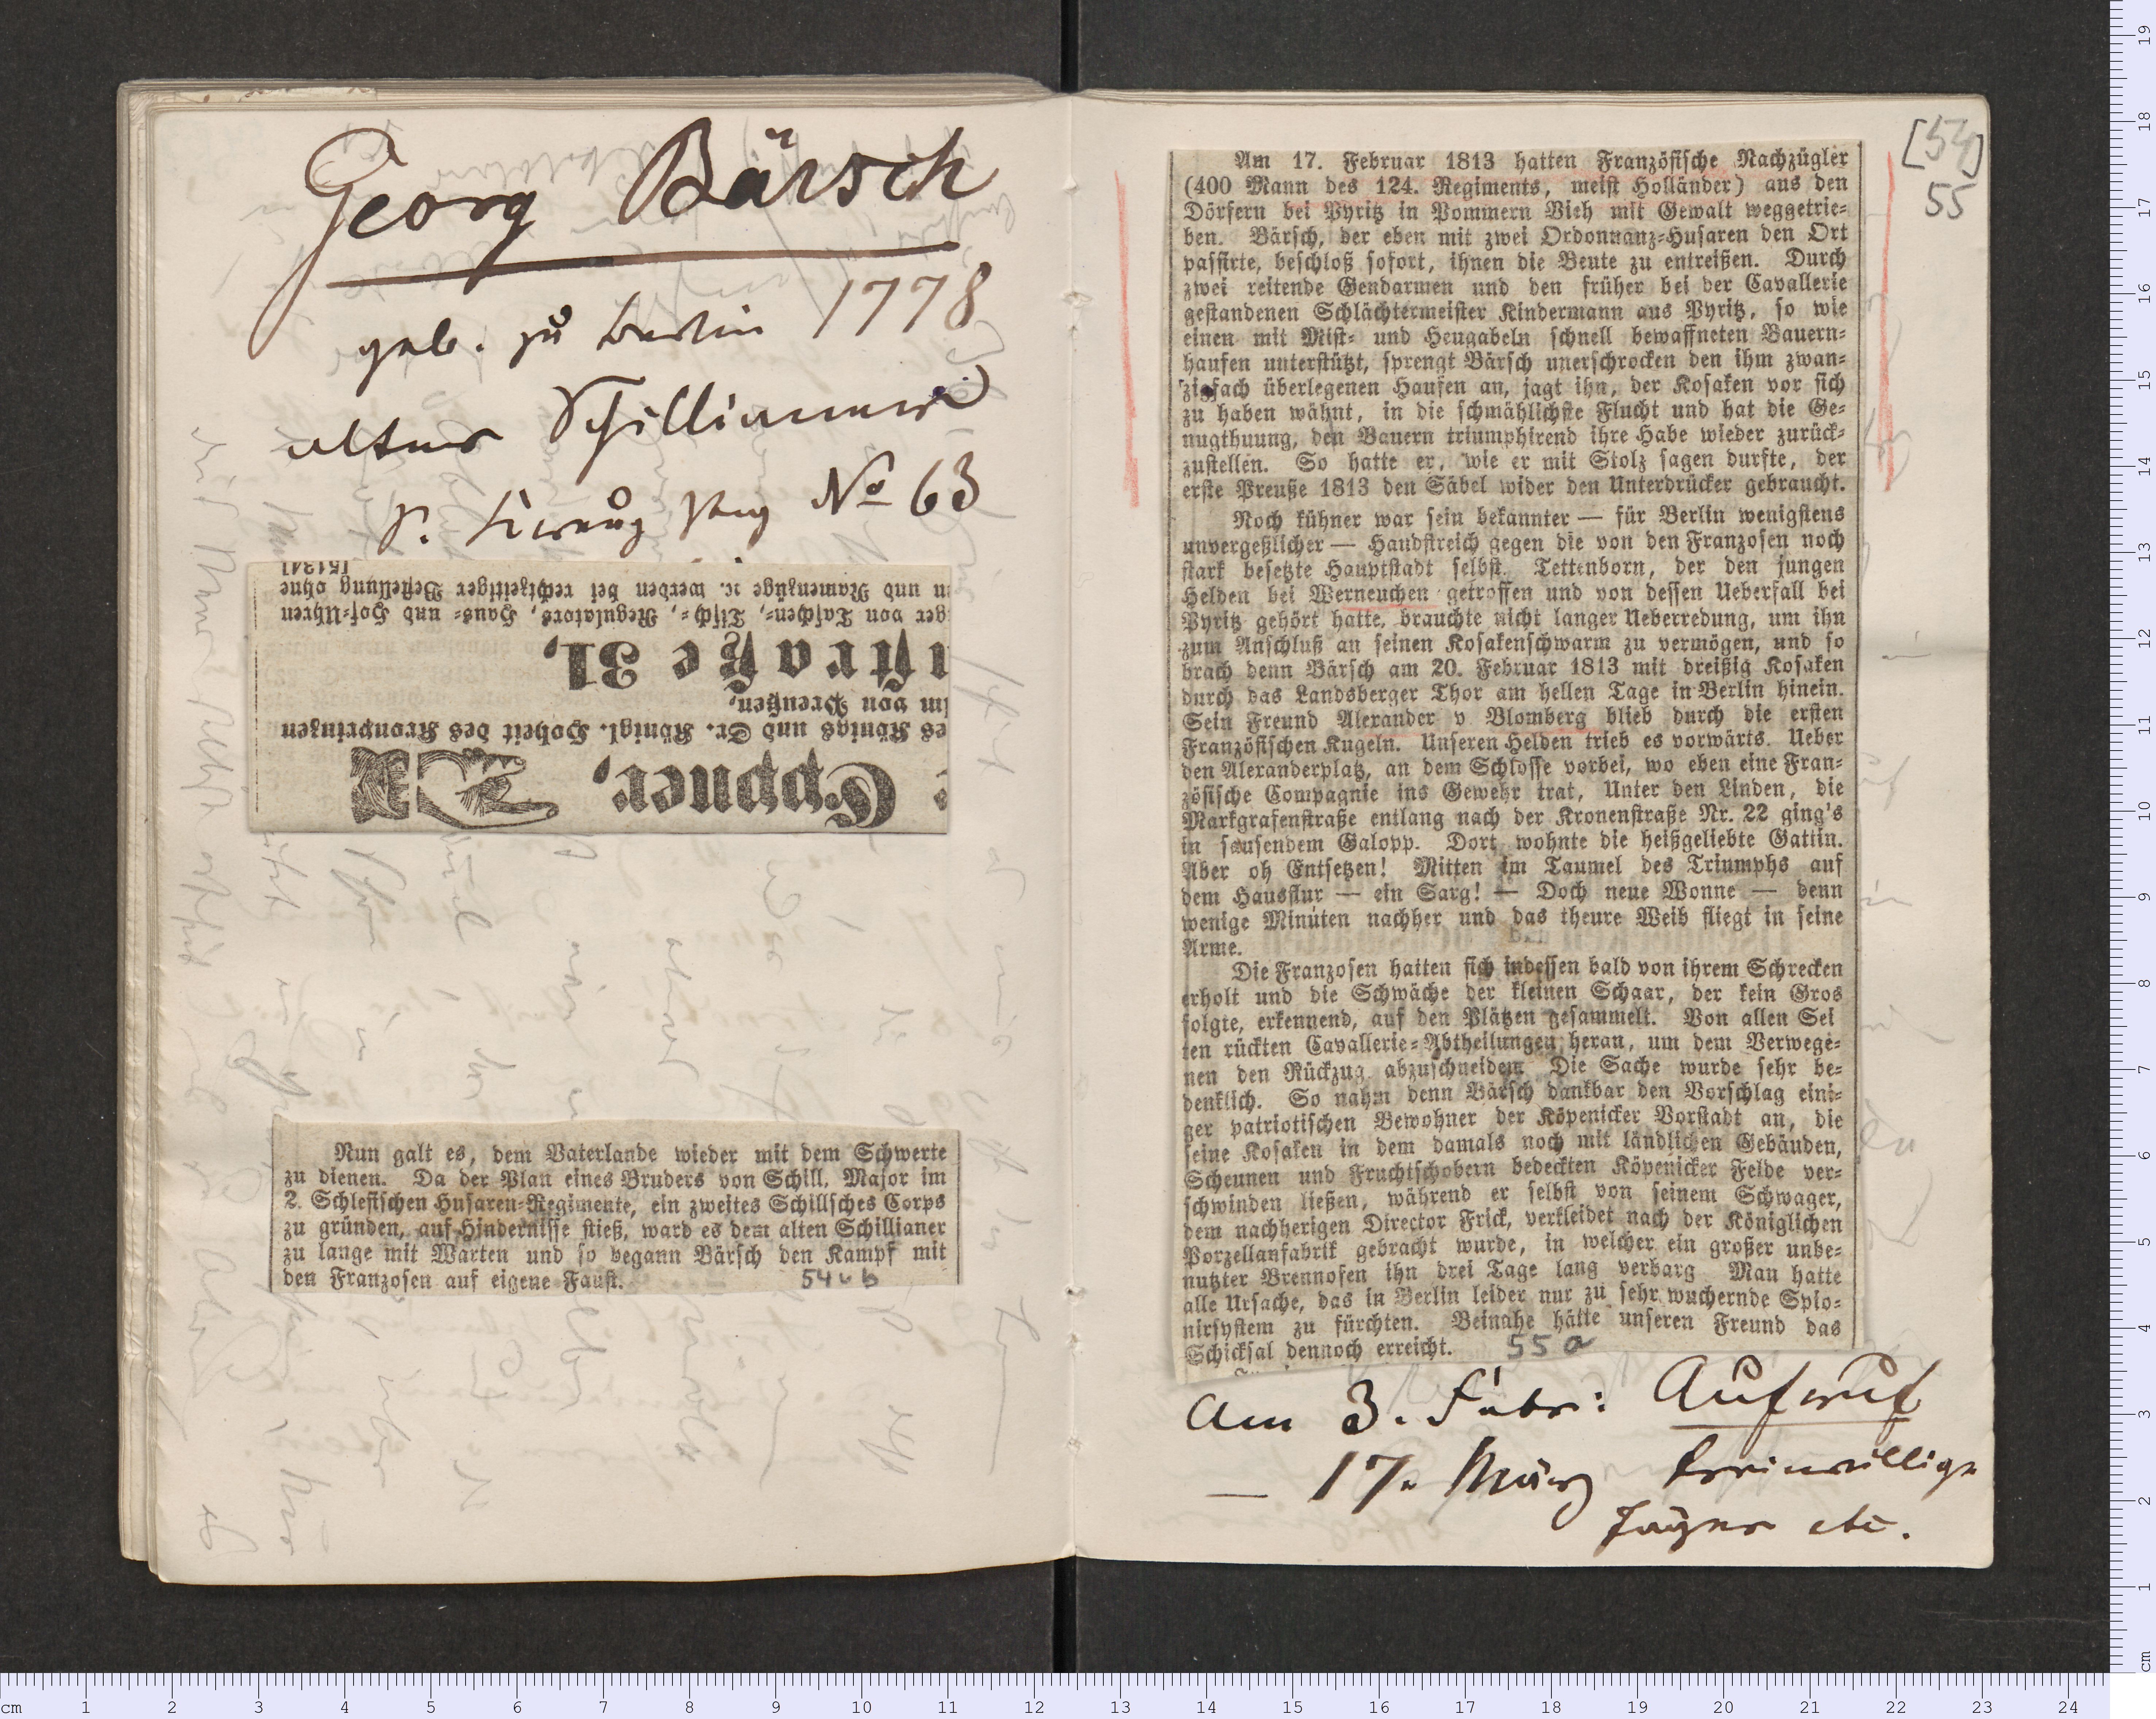 Georg Bärsch
geb. zu Berlin 1778
alter Schillianer
s. Kreuz Ztng No 63
Eppner,
es Königs und Sr. Königl. Hoheit des Kronprinzen
von Preußen,
straße 31,
ger von Taschen-, Tisch-, Regulators, Haus- und Hof-Uhren
und Namenzüge ꝛc. werden bei rechtzeitiger Bestellung ohne
[5134]
Nun galt es, dem Vaterlande wieder mit dem Schwerte
zu dienen. Da der Plan eines Bruders von Schill, Major im
2. Schlesischen Husaren-Regimente, ein zweites Schillsches Corps
zu gründen, auf Hindernisse stieß, ward es dem alten Schillianer
zu lange mit Warten und so begann Bärsch den Kampf mit
den Franzosen auf eigene Faust.
54 b
[54]
55
Am 17. Februar 1813 hatten Französische Nachzügler
(400 Mann des 124. Regiments, meist Holländer) aus den
Dörfern bei Pyritz in Pommern Vieh mit Gewalt weggetrie-
ben. Bärsch, der eben mit zwei Ordonnanz-Husaren den Ort
passirte, beschloß sofort, ihnen die Beute zu entreißen. Durch
zwei reitende Gendarmen und den früher bei der Cavallerie
gestandenen Schlächtermeister Kindermann aus Pyritz, so wie
einen mit Mist- und Heugabeln schnell bewaffneten Bauern-
haufen unterstützt, sprengt Bärsch unerschrocken den ihm zwan-
zigfach überlegenen Haufen an, jagt ihn, der Kosaken vor sich
zu haben wähnt, in die schmählichste Flucht und hat die Ge-
nugthuung, den Bauern triumphirend ihre Habe wieder zurück-
zustellen. So hatte er, wie er mit Stolz sagen durfte, der
erste Preuße 1813 den Säbel wider den Unterdrücker gebraucht.
Noch kühner war sein bekannter — für Berlin wenigstens
unvergeßlicher — Handstreich gegen die von den Franzosen noch
stark besetzte Hauptstadt selbst. Tettenborn, der den jungen
Helden bei Werneuchen getroffen und von dessen Ueberfall bei
Pyritz gehört hatte, brauchte nicht langer Ueberredung, um ihn
zum Anschluß an seinen Kosakenschwarm zu vermögen, und so
brach denn Bärsch am 20. Februar 1813 mit dreißig Kosaken
durch das Landsberger Thor am hellen Tage in Berlin hinein.
Sein Freund Alexander v Blomberg blieb durch die ersten
Französischen Kugeln. Unseren Helden trieb es vorwärts. Ueber
den Alexanderplatz, an dem Schlosse vorbei, wo eben eine Fran-
zösische Compagnie ins Gewehr trat, Unter den Linden, die
Markgrafenstraße entlang nach der Kronenstraße Nr. 22 ging's
in sausendem Galopp. Dort wohnte die heißgeliebte Gattin.
Aber oh Entsetzen! Mitten im Taumel des Triumphs auf
dem Hausflur — ein Sarg! — Doch neue Wonne — denn
wenige Minuten nachher und das theure Weib fliegt in seine
Arme.
Die Franzosen hatten sich indessen bald von ihrem Schrecken
erholt und die Schwäche der kleinen Schaar, der kein Gros
folgte, erkennend, auf den Plätzen gesammelt. Von allen Sei
ten rückten Cavallerie-Abtheilungen heran, um dem Verwege-
nen den Rückzug abzuschneiden. Die Sache wurde sehr be-
denklich. So nahm denn Bärsch dankbar den Vorschlag eini-
ger patriotischen Bewohner der Köpenicker Vorstadt an, die
seine Kosaken in dem damals noch mit ländlichen Gebäuden,
Scheunen und Fruchtschobern bedeckten Köpenicker Felde ver-
schwinden ließen, während er selbst von seinem Schwager,
dem nachherigen Director Frick, verkleidet nach der Königlichen
Porzellanfabrik gebracht wurde, in welcher ein großer unbe-
nutzter Brennofen ihn drei Tage lang verbarg Man hatte
alle Ursache, das in Berlin leider nur zu sehr wuchernde Spio-
nirsystem zu fürchten. Beinahe hätte unseren Freund das
Schicksal dennoch erreicht.
55 a
Am 3. Febr: Aufruf
— 17. März Freiwillige
Jäger etc.